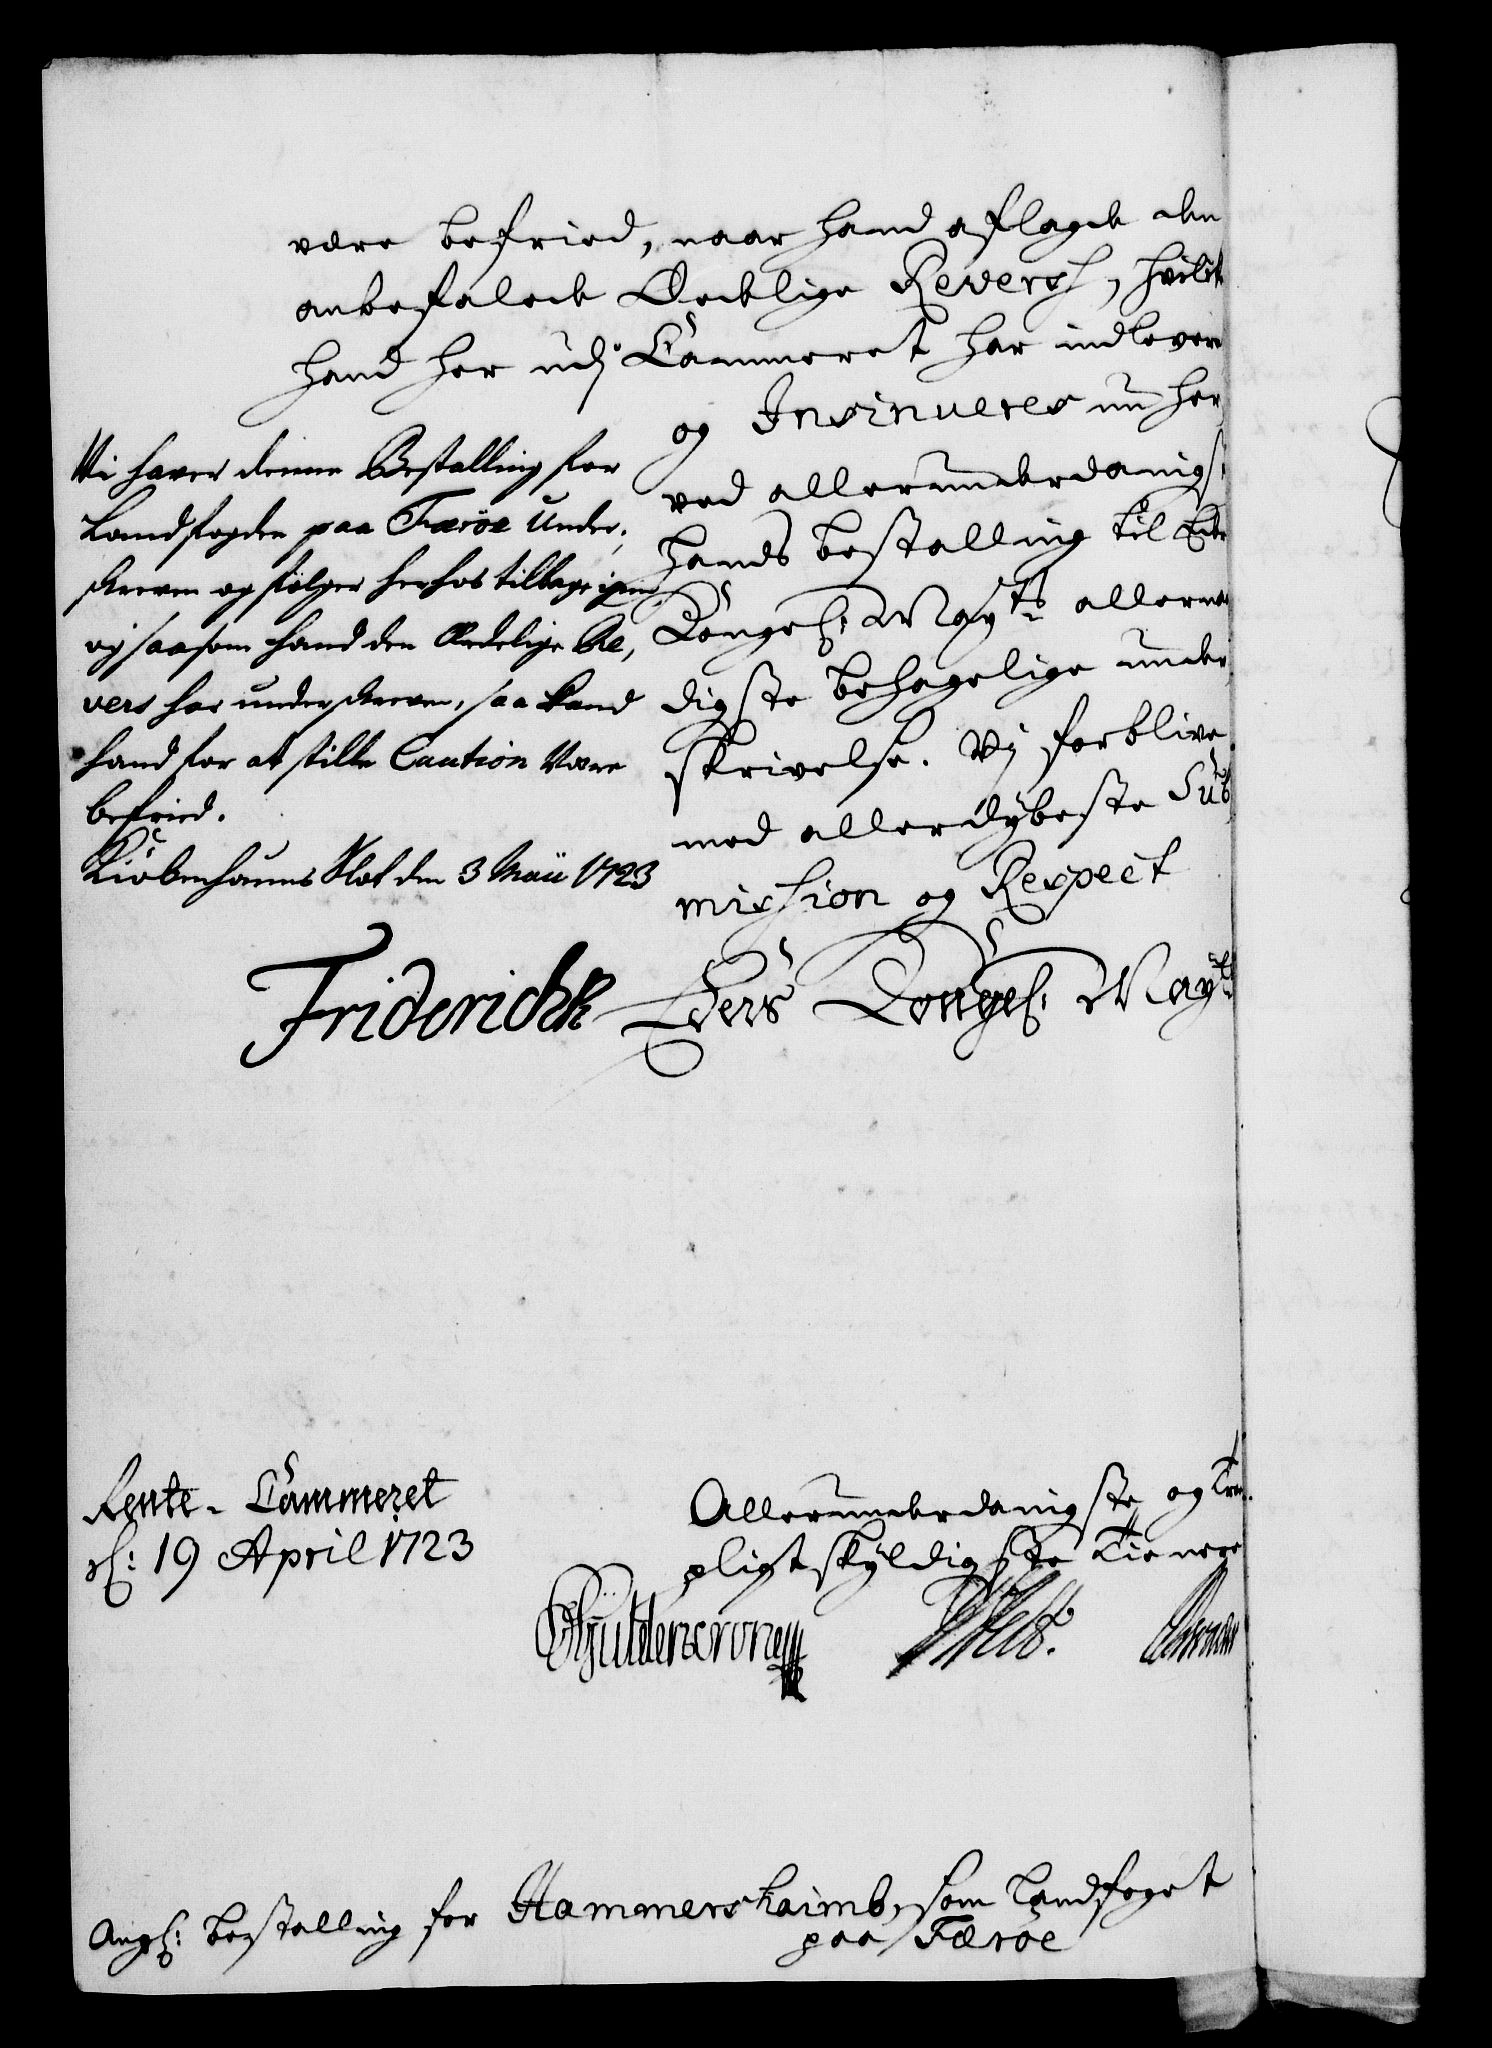 være befried, naar hand aflagde den
anbefalede Eedelige Reversh, hvilk
hand her udj Cammeret har indlever
og Insinueres nu her
ved allerunderdanigst
hands bestalling til Eders
Kongel: Mayts allernaa
digste behagelige under
skrivelse. Vj forblive
med allerdybeste Sub
mishion og Respect
Eders Kongel: Mayts
Vi haver denne Bestalling for
Landfogden paa Færöe Under,
skreven og følger herhos tilbage igien,
og saasom hand den Eedelige Re,
vers har underskreven, saa kand
hand for at stille Caution Være
befried.
Kiöbenhauns Slot den 3 Maii 1723
Friderich R
Rente-Cammeret
d: 19 April 1723
Allerunderdanigste og Troe
pligtskyldigste Tienere
Gyldencrone
Ang: bestalling for Hammershaimb, som Landfoget
paa Færöe